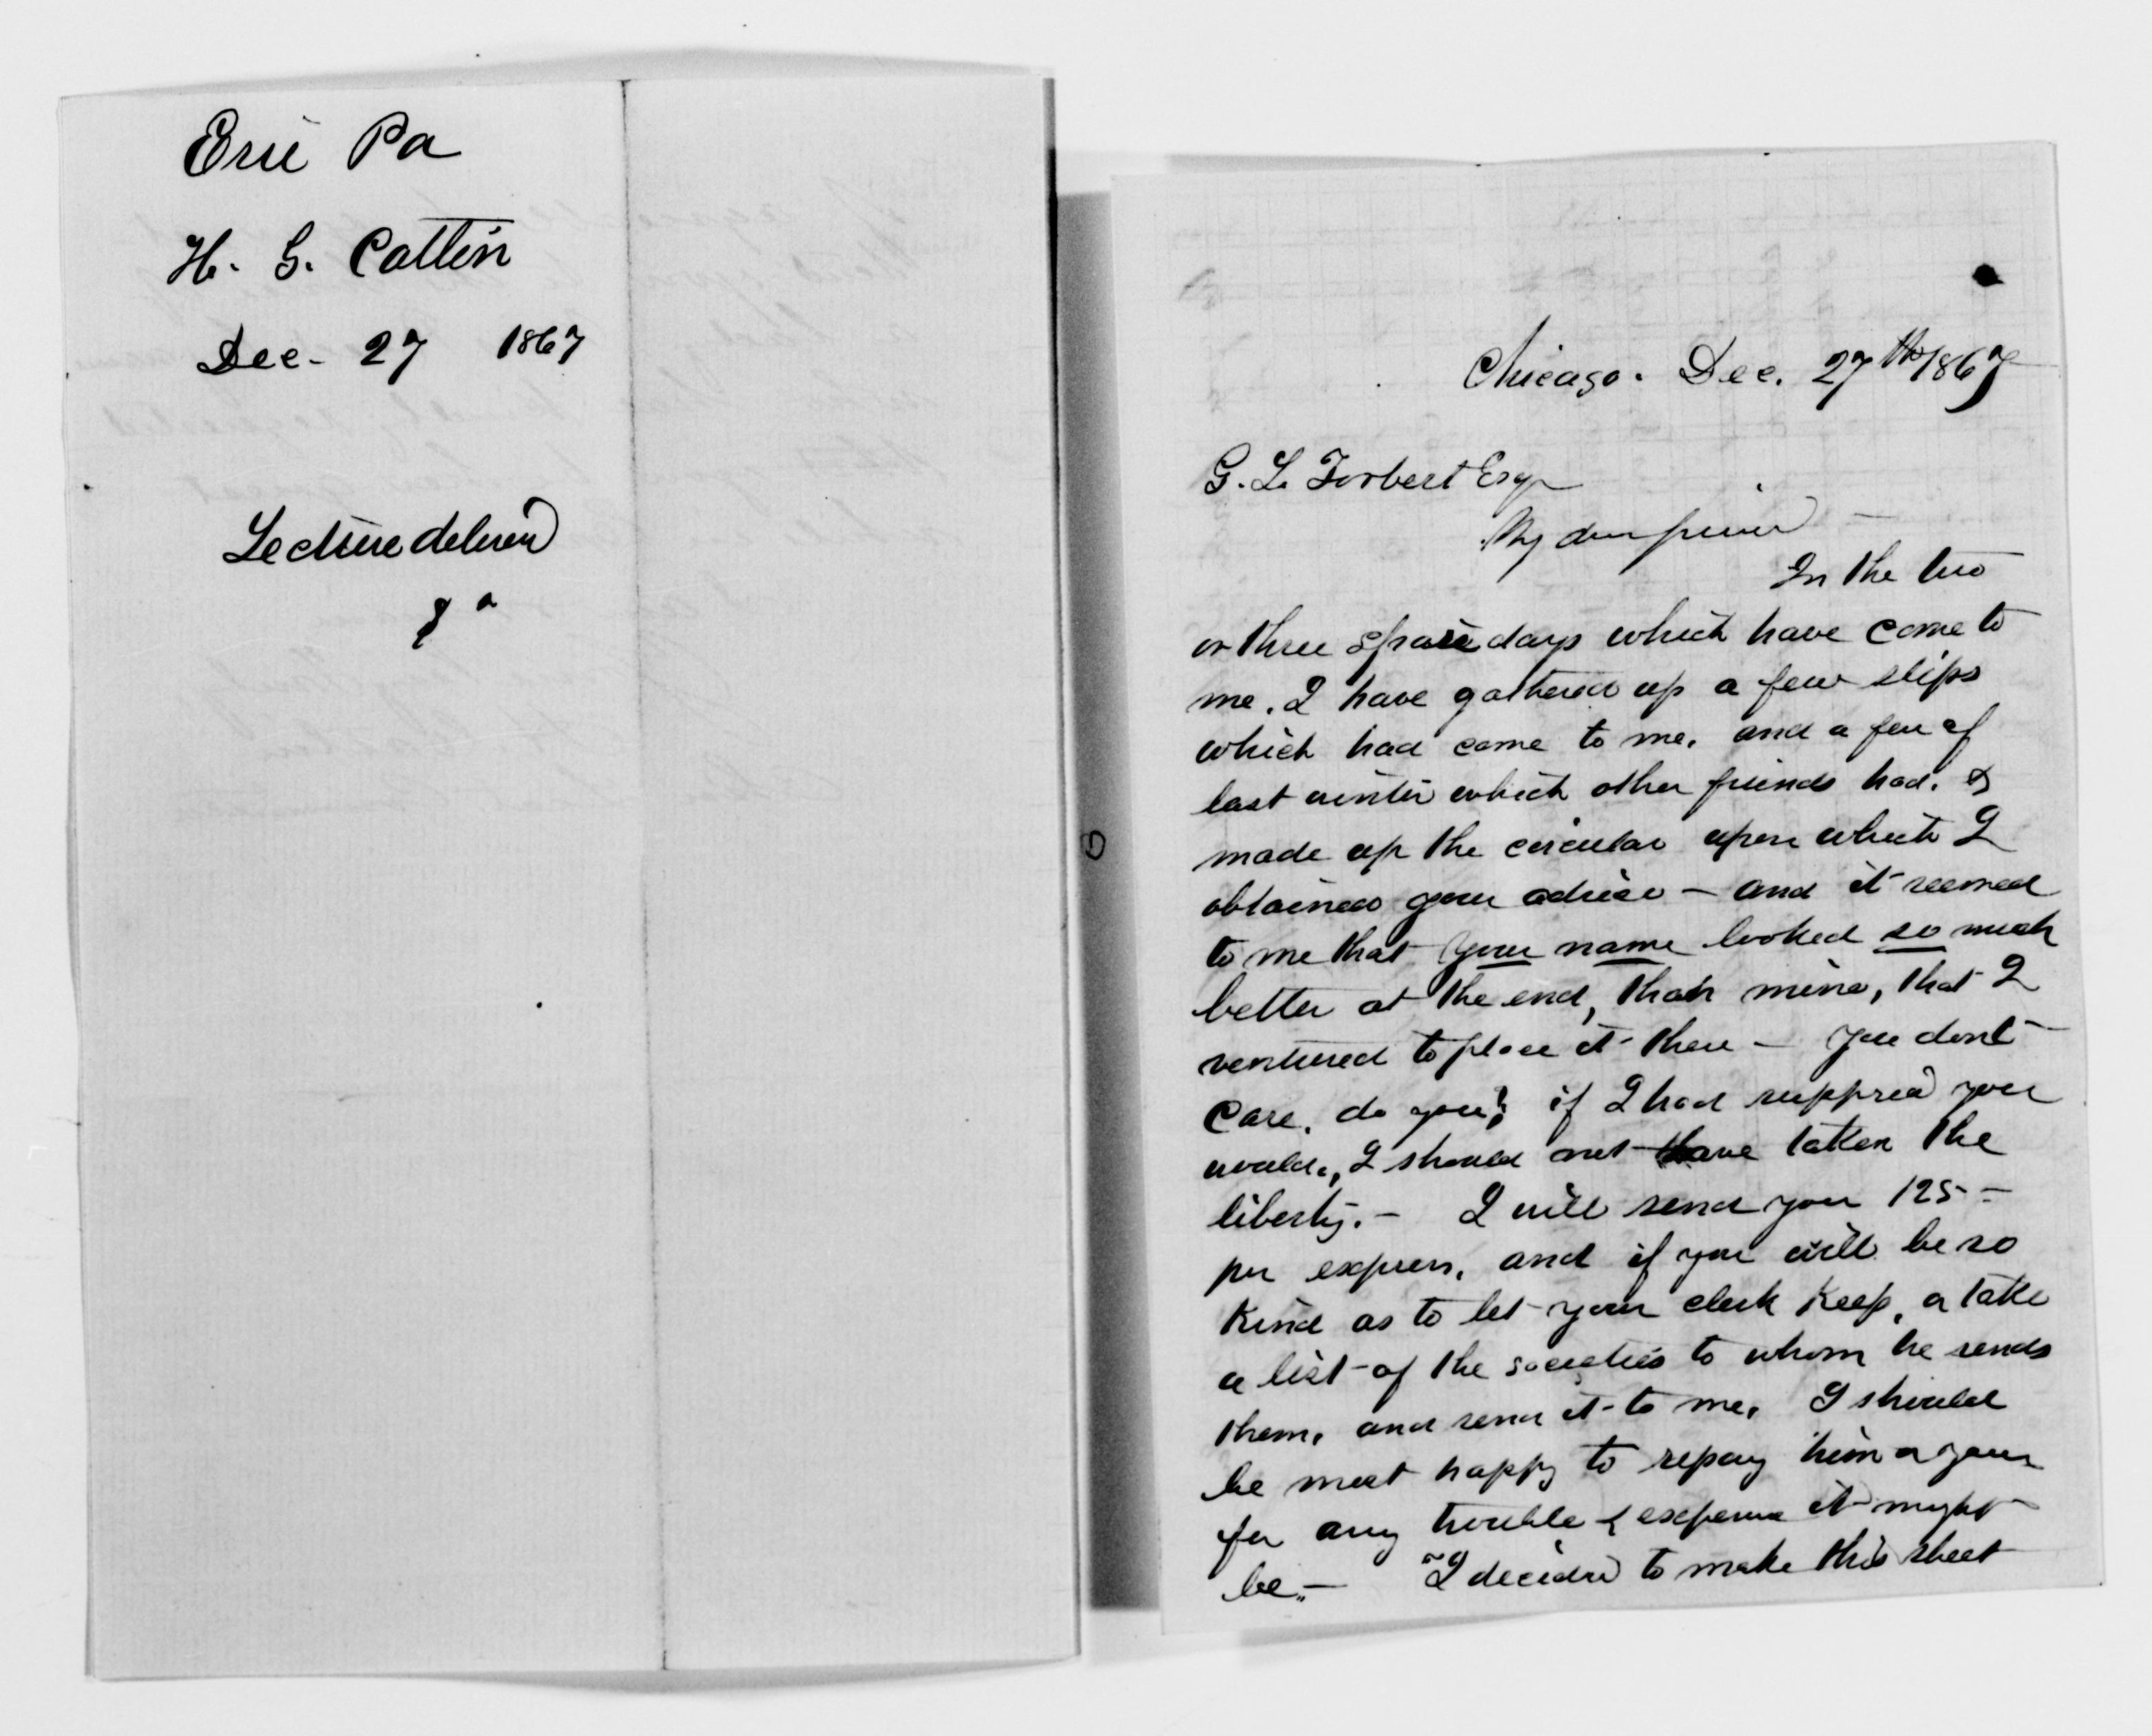 Erie Pa
H. S. Catlin
Dec- 27 1867
Lecture delivered
Chicago. Dec. 27th 1867
G. L. Torbert Esq
My dear friend —
In the two
or three spare days which have come to
me. I have gathered up a few slips
which had come to me. and a few of
last winter which other friends had. &
made up the circular upon which I
obtained your advice — and it seemed
to me that your name looked so much
better at the end, than mine, that I
ventured to place it there — You dont
care. do you? if I had supposed you
would., I should not have taken the
liberty. — I will send you 125 —
per express. and if you will be so
kind as to let your clerk keep, or take
a list of the societies to whom he sends
them. and send it to me. I should
be most happy to repay him or you
for any trouble & expense it might
be. — I decided to make this sheet